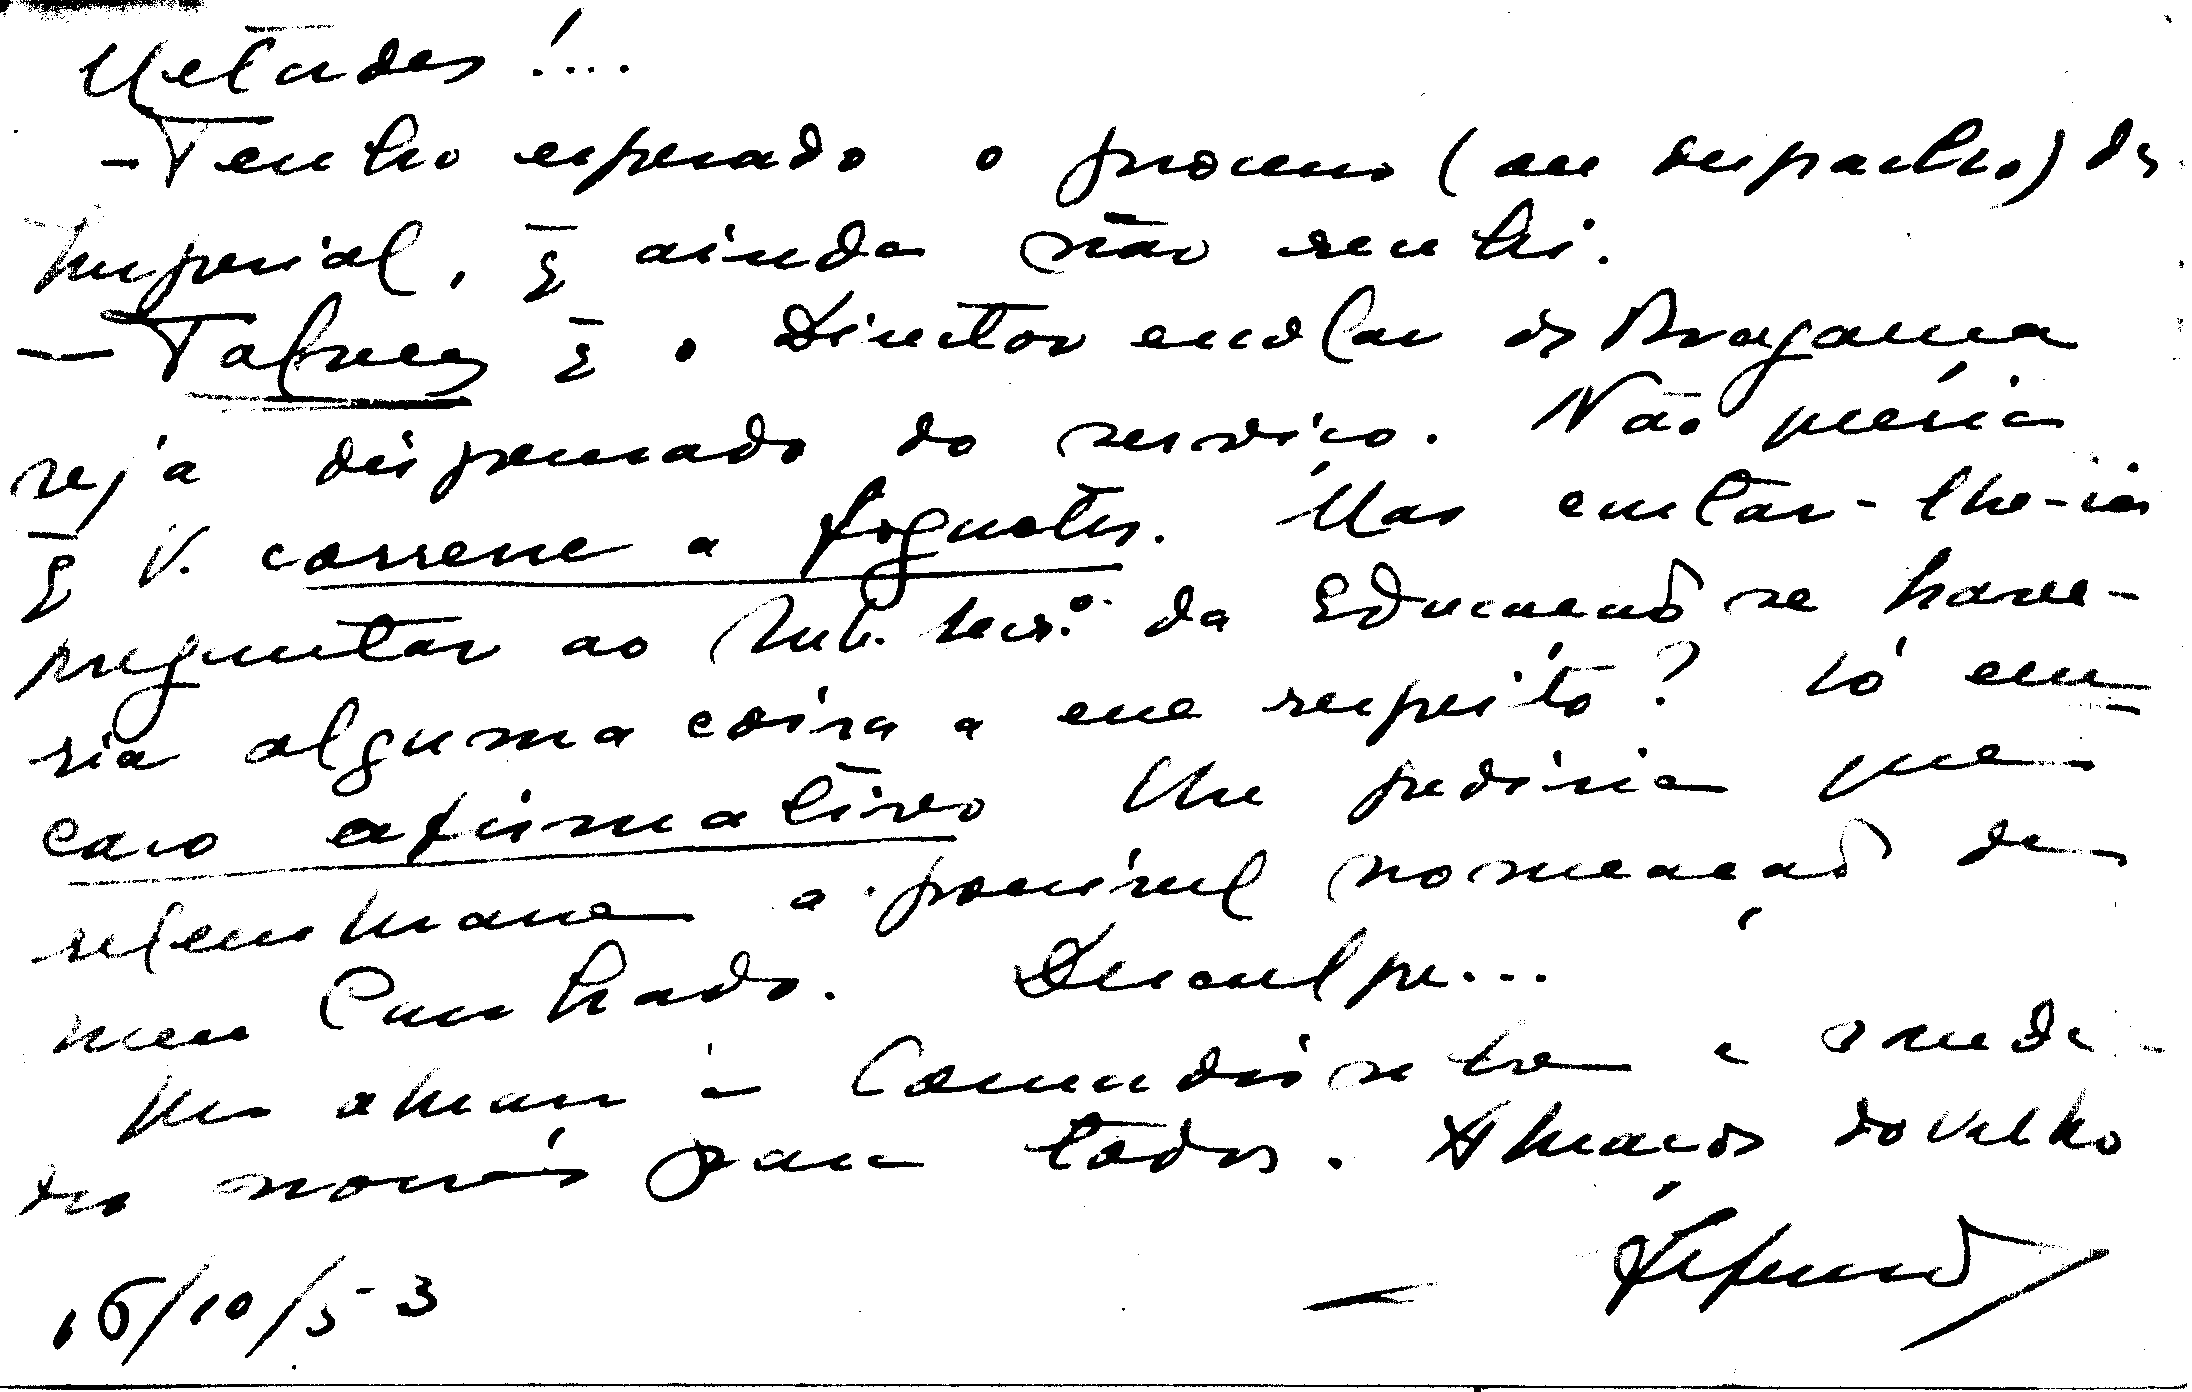 Metades!...
- Tenho esperado o processo (ou despacho) do
Imperial, q̄ ainda não senti.
- Talvez q̄ o Director escolar de Bragança
seja dispensado do serviço. Não queria
q̄ V. corresse a foguetes. Mas custar-lhe-ia
preguntar ao Sub. Secr.º da Educação se have-
ria alguma coisa a esse respeito? Só em
caso afirmativo lhe pediria que
relembrasse a possível nomeação de
meu Cunhado. Desculpe...
Um abraço à e
dos nossos para todos. Abraços do velho
16/10/53